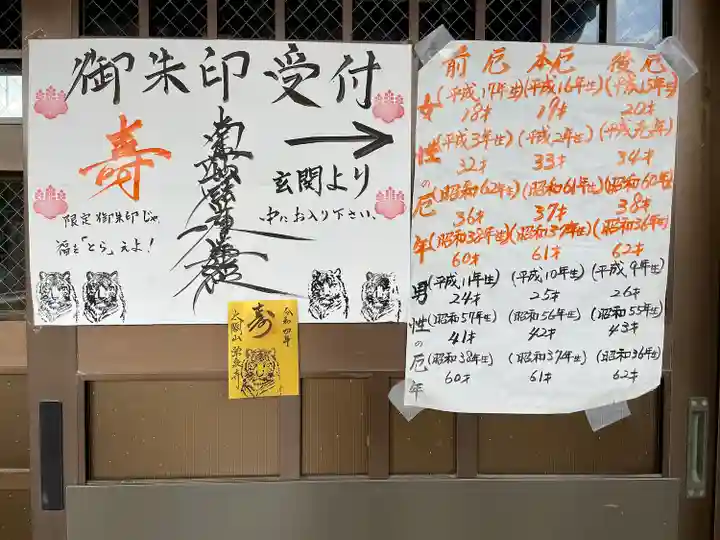 御朱印受付
寿
南無妙法蓮華経
玄関より
中にお入り下さい。
限定御朱印じゃ
福を「とら」えよ!
寿
令和四年
太閤山
前厄 本厄 後厄
女性の厄年
(平成17年生) (平成16年生) (平成15年生)
18才 19才 20才
(平成3年生) (平成2年生) (平成元年)
32才 33才 34才
(昭和62年生) (昭和61年生) (昭和60年生)
36才 37才 38才
(昭和38年生) (昭和37年生) (昭和36年生)
60才 61才 62才
男性の厄年
(平成11年生) (平成10年生) (平成9年生)
24才 25才 26才
(昭和57年生) (昭和56年生) (昭和55年生)
41才 42才 43才
(昭和38年生) (昭和37年生) (昭和36年生)
60才 61才 62才